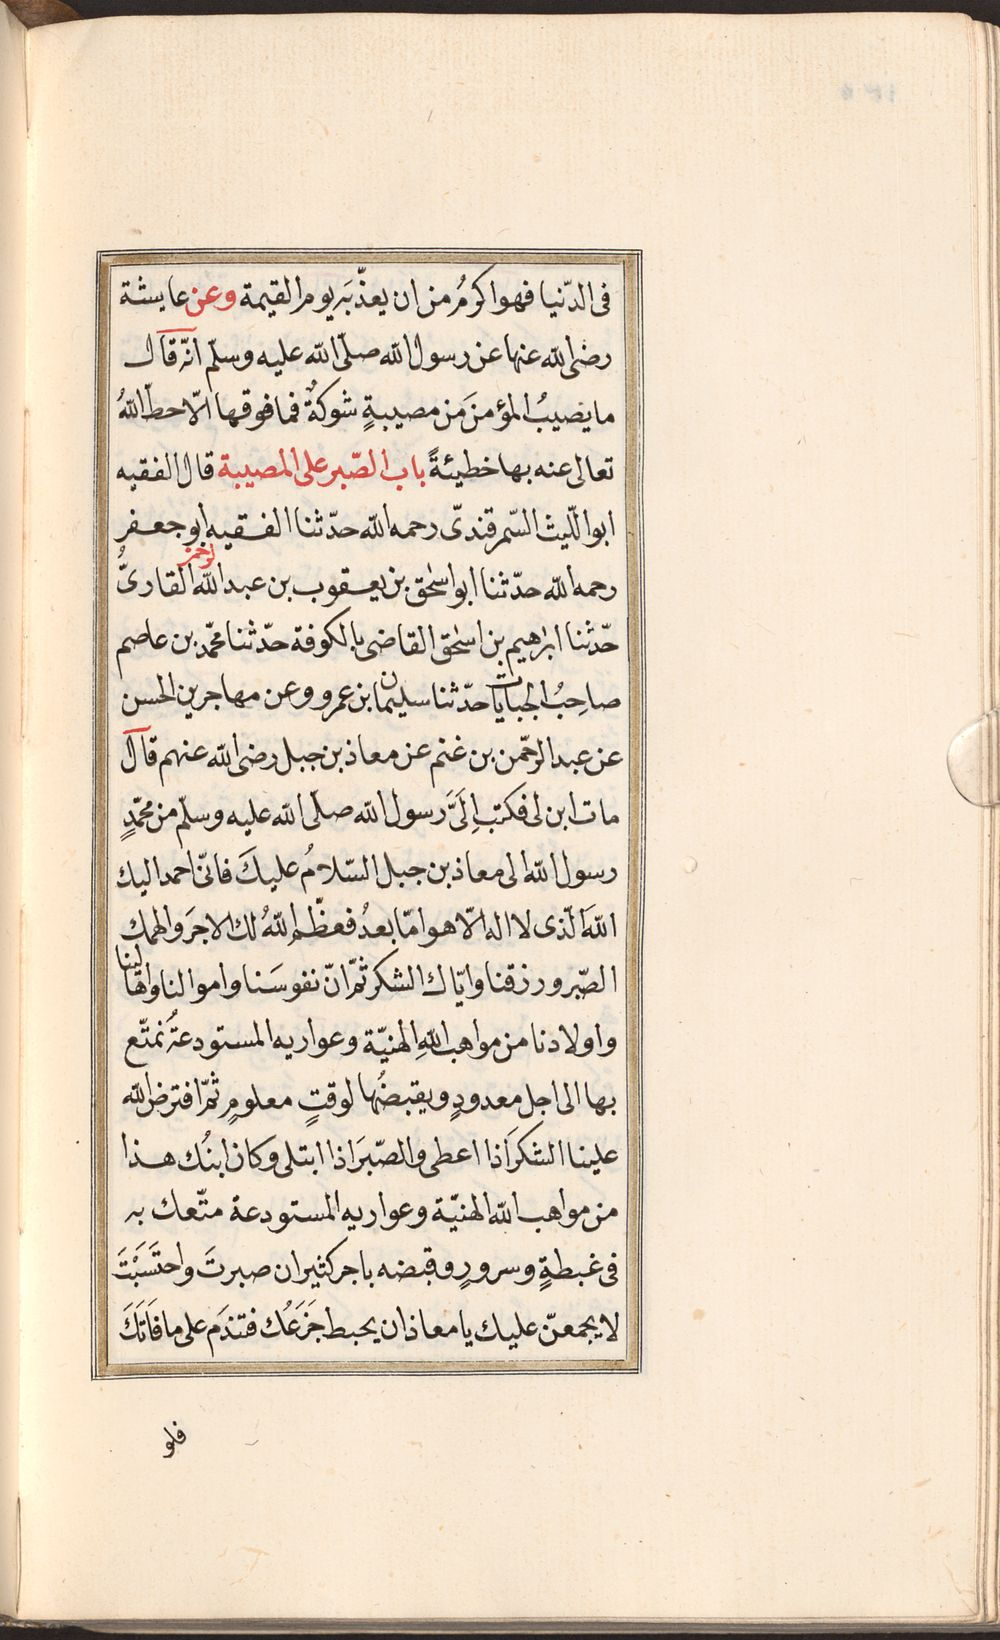 فى الدّنيا فهو اكرمُ من ان يعذّبَه يوم القيمة وعن عايشة
رضى الله عنها عن رسول الله صلّى الله عليه وسلّم انّه قال
ما يصيبُ المؤمنَ من مصيبةٍ شوكةٌ فما فوقها الّا حطّ اللهُ
تعالى عنه بها خطيئةً باب الصّبر على المصيبة قال الفقيه
ابو اللّيث السّمرقندىّ رحمه الله حدّثنا الفقيه ابو جعفر
رحمه الله حدّثنا ابو اسحٰق بن يعقوب بن عبد الله القارىُّ
حدّثنا ابرٰهيم بن اسحٰق القاضى بالكوفة حدّثنا محمّد بن عاصم
صاحبُ الجبايات حدّثنا سليمان بن عمرو وعن مهاجر بن الحسن
عن عبد الرّحمن بن غنم عن معاذ بن جبل رضى الله عنهم قال
مات ابن لى فكتب اِلَىَّ رسول الله صلّى الله عليه وسلّم من محمّدٍ
رسول الله الى معاذ بن جبل السّلامُ عليكَ فانّى احمد اليك
اللهَ الّذى لا اله الّا هو امّا بعدُ فعظّم اللهُ لك الاجرَ والهمك
الصّبر ورزقنا وايّاك الشكر ثمّ انّ نفوسَنا واموالنا واهالينا
واولادنا من مواهب اللهِ الهنيّة وعواريه المستودعةُ نمتّع
بها الى اجل معدودٍ ويقبضُها لوقتٍ معلومٍ ثمّ افترض الله
علينا الشكرَ اذا اعطى والصّبرَ اذا ابتلى وكان ابنُك هذا
من مواهب الله الهنيّة وعواريه المستودعة متّعك به
فى غبطةٍ وسرورٍ وقبضه باجر كثير ان صبرتَ واحتَسَبْتَ
لا يجمعنّ عليك يا معاذ ان يحبط جَزَعُك فتندَم على ما فَاتَكَ
فلو